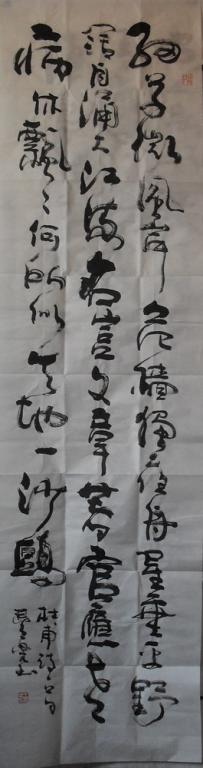 細草微風岸危檣獨夜舟星垂平野
闊月涌大江流名豈文章著官應老
病休飄々何所似天地一沙鷗
杜甫詩